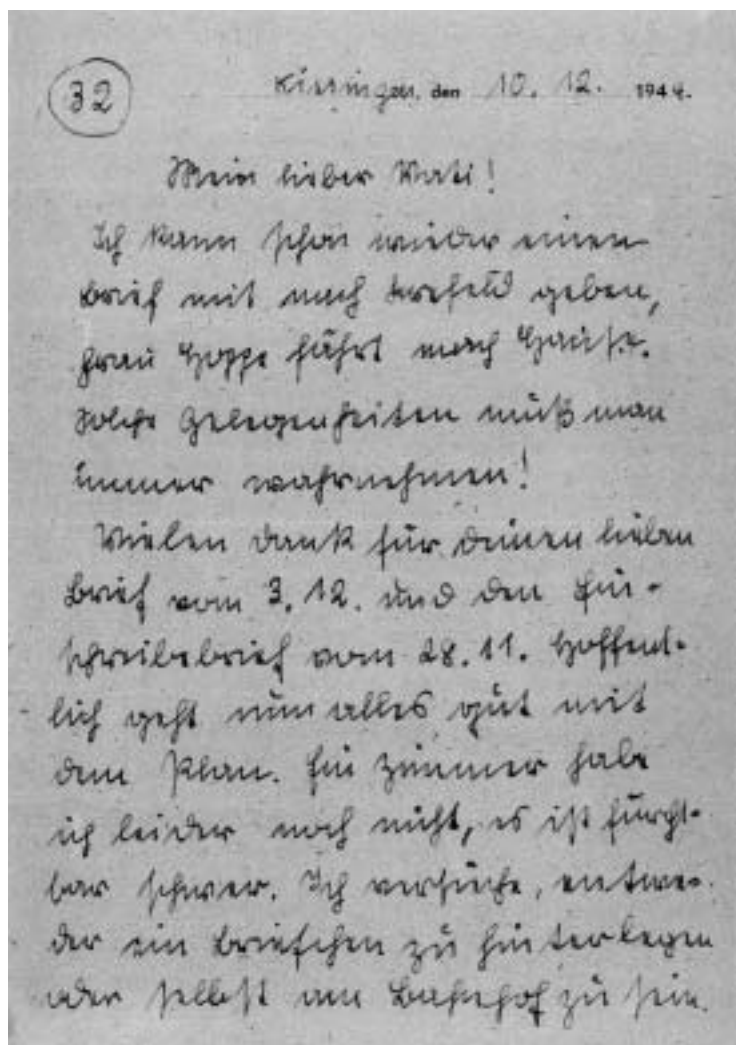 32
Kissingen, den 10. 12. 1944.
Mein lieber Vati!
Ich kann schon wieder einen
Brief mit nach Krefeld geben,
Frau Hoppe fährt nach Hause.
Solche Gelegenheiten muß man
immer wahrnehmen!
Vielen Dank für deinen lieben
Brief vom 3. 12. und den Ein-
schreibebrief vom 28. 11. Hoffent-
lich geht nun alles gut mit
dem Plan. Ein Zimmer habe
ich leider noch nicht, es ist furcht-
bar schwer. Ich versuche, entwe-
der ein Briefchen zu hinterlegen
oder selbst am Bahnhof zu sein.